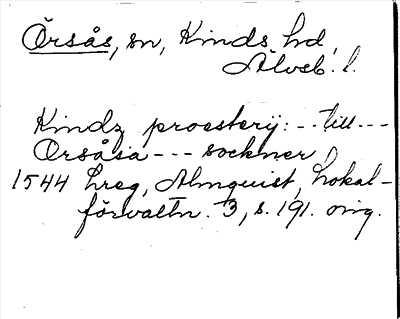 Örsås, sn, Kinds hd,
Älvsb. l.
Kindz proesterij: - - till - - -
Orsåsa - - - sockner
1544 hreg, Almquist, Lokal-
förvaltn. 3, s. 191. orig.